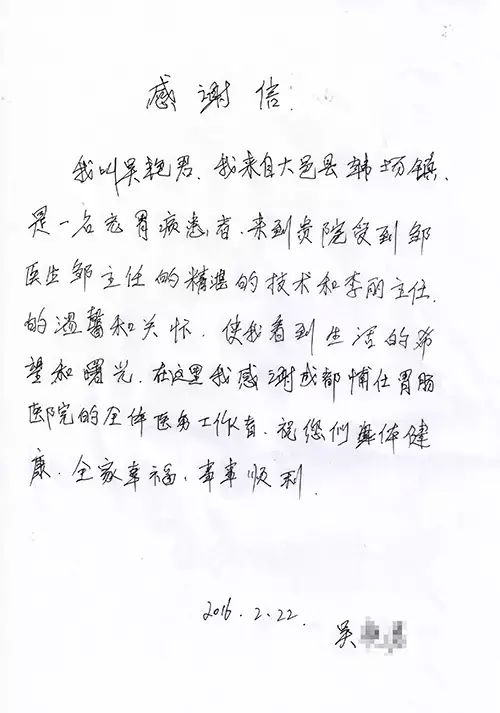 感谢信.
我叫吴艳君.我来自大邑县韩场镇,
是一名老胃病患者.来到贵院受到邹
医生邹主任的精湛的技术和李丽主任.
的温馨和关怀.使我看到生活的希
望和曙光.在这里我感谢成都博仕胃肠
医院的全体医务工作者.祝您们身体健
康.全家幸福、事事顺利.
2016.2.22.
吴